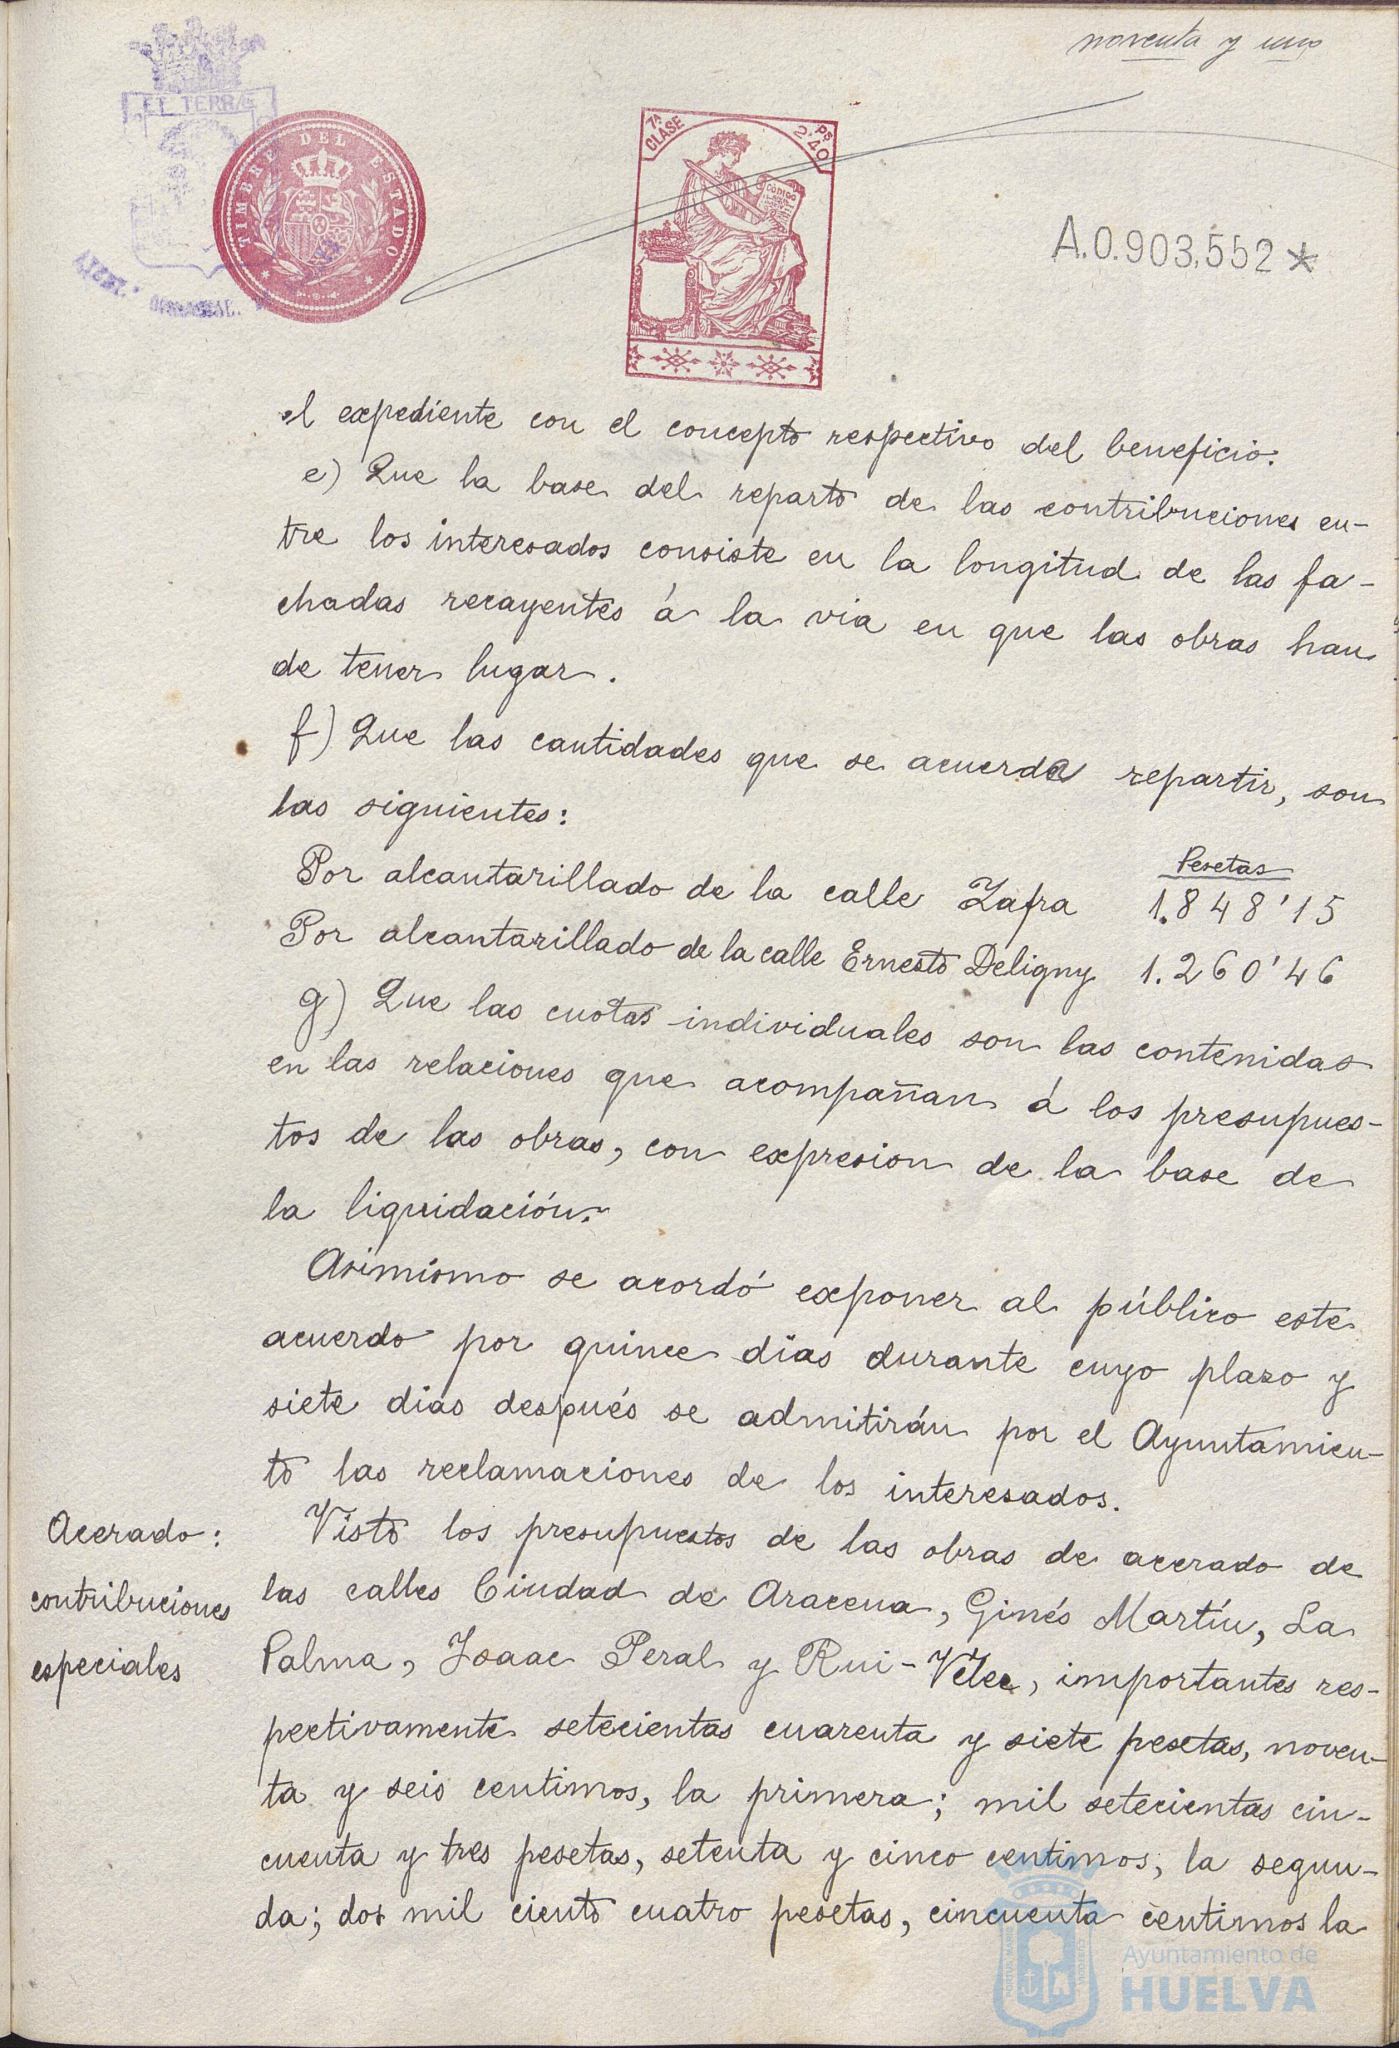 noventa y uno
EL TERR
TIMBRE DEL ESTADO
7ª CLASE
2'40 Ps
CODIGO
A.0.903,552*
el expediente con el concepto respectivo del beneficio:
e) Que la base del reparto de las contribuciones en-
tre los interesados consiste en la longitud de las fa-
chadas recayentes á la via en que las obras han
de tener lugar.
f) Que las cantidades que se acuerda repartir, son
las siguientes:
Pesetas
Por alcantarillado de la calle Zafra 1.848'15
Por alcantarillado de la calle Ernesto Deligny 1.260'46
g) Que las cuotas individuales son las contenidas
en las relaciones que acompañan á los presupues-
tos de las obras, con expresion de la base de
la liquidación.
Asimismo se acordó exponer al público este
acuerdo por quince dias durante cuyo plazo y
siete dias después se admitirán por el Ayuntamien-
to las reclamaciones de los interesados.
Acerado:
contribuciones
especiales
Visto los presupuestos de las obras de acerado de
las calles Ciudad de Aracena, Ginés Martín, La
Palma, Isaac Peral y Rui-Vélez, importantes res-
pectivamente setecientas cuarenta y siete pesetas, noven-
ta y seis centimos, la primera; mil setecientas cin-
cuenta y tres pesetas, setenta y cinco centimos, la segun-
da; dos mil ciento cuatro pesetas, cincuenta centimos la
Ayuntamiento de
HUELVA